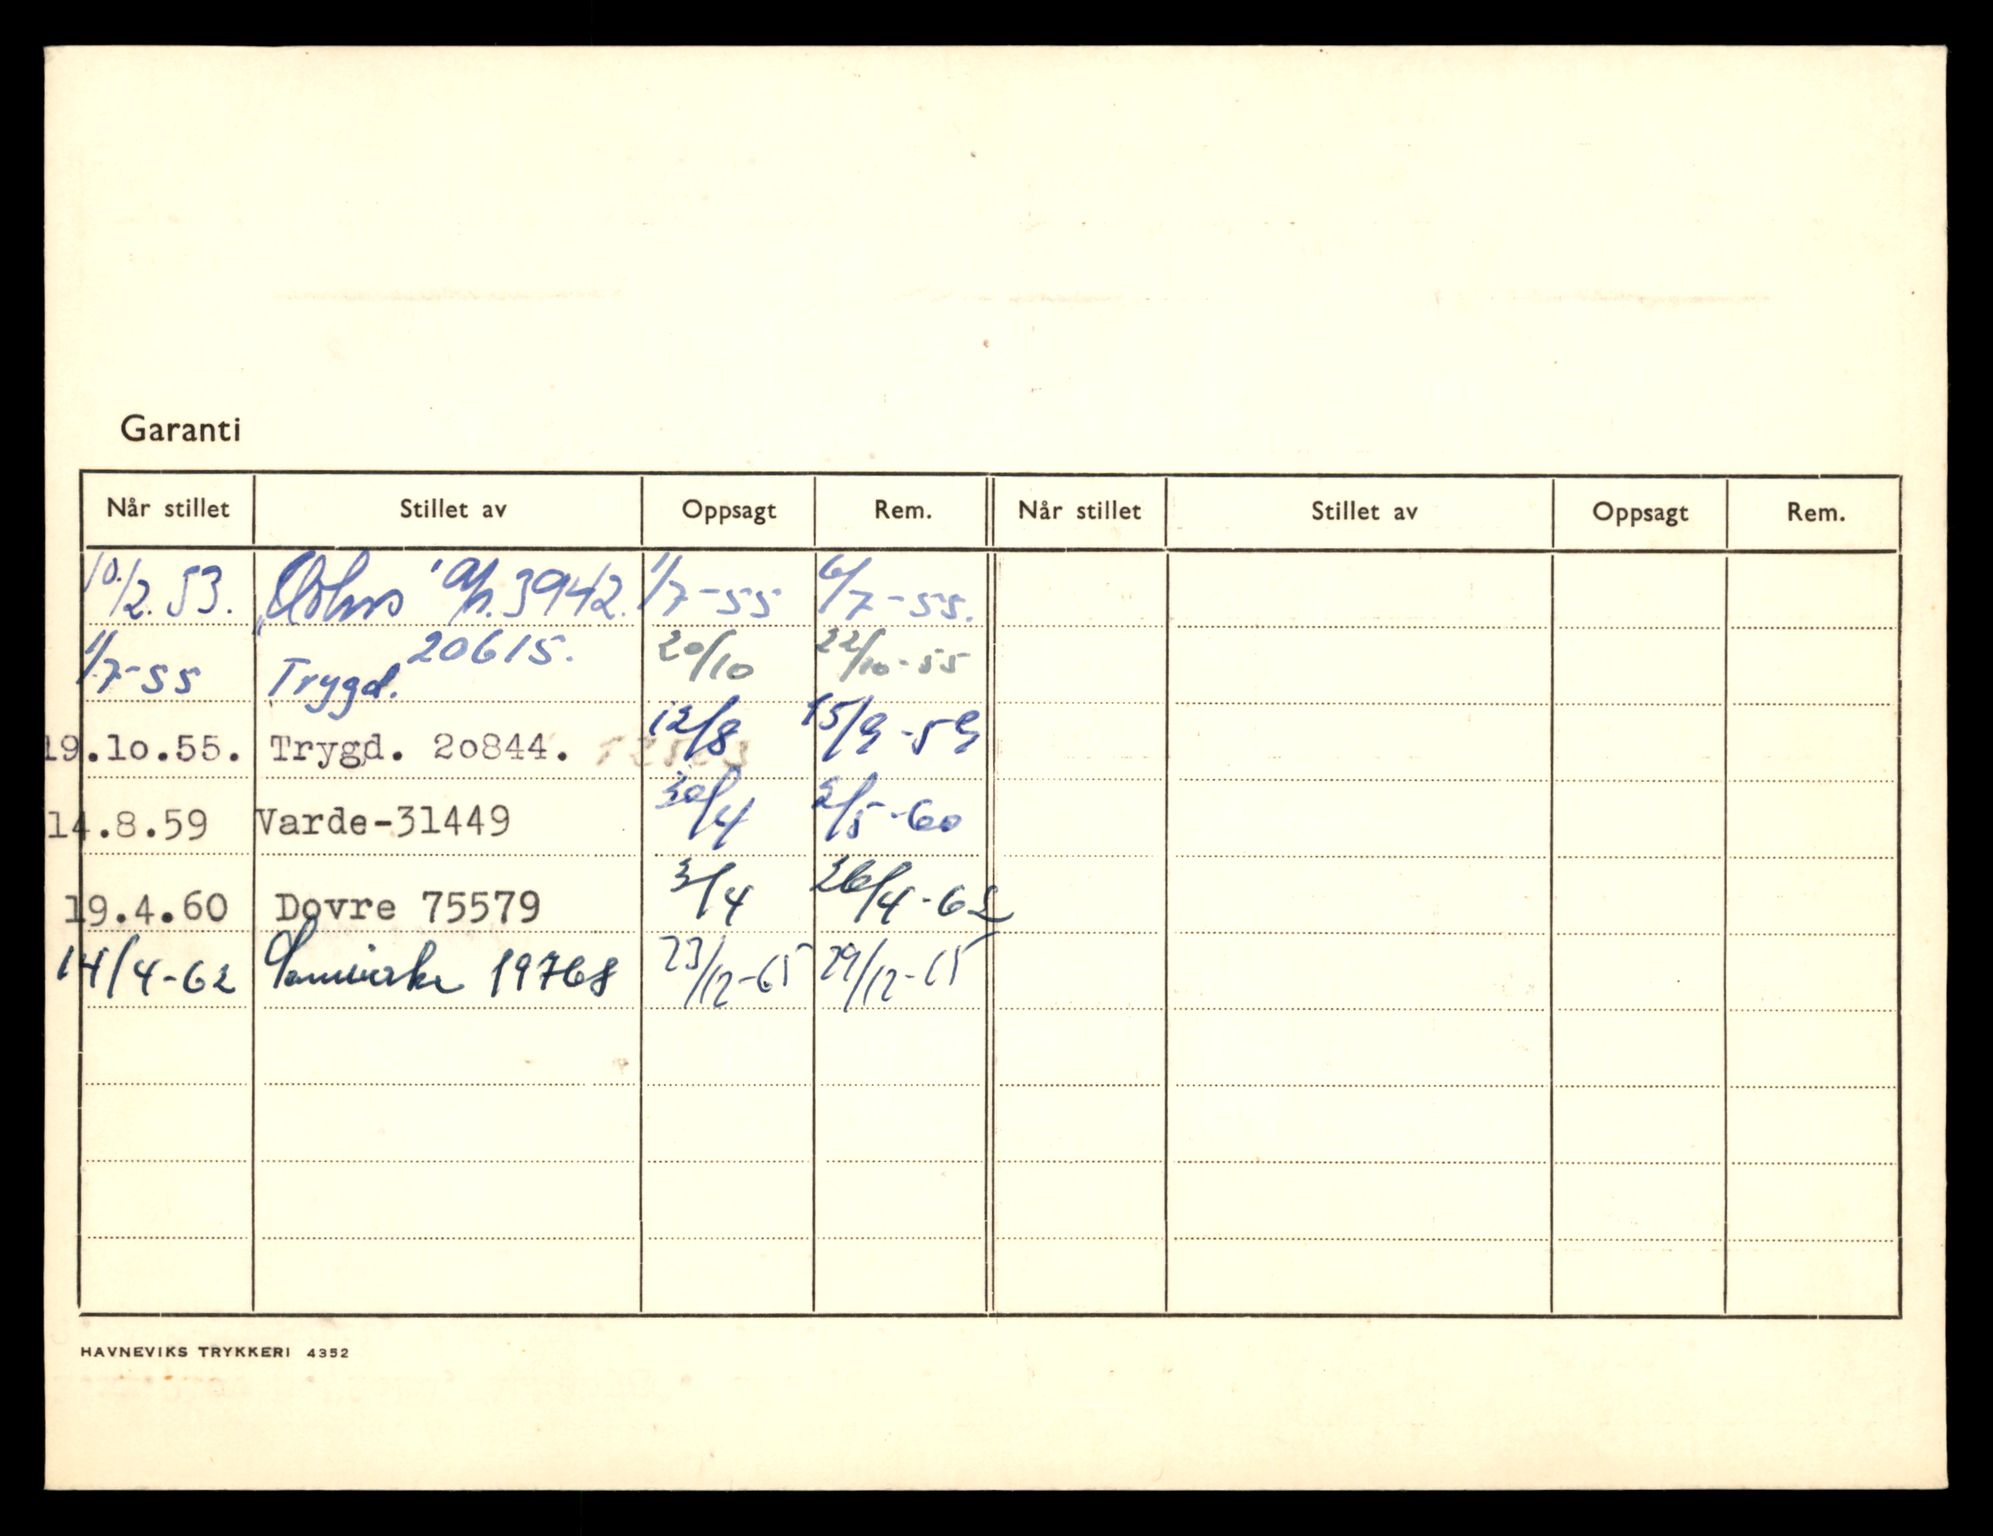 Garanti
Når stillet Stillet av Oppsagt Rem. Når stillet Stillet av Oppsagt Rem.
10/2.53. 3942. 1/7-55 6/7-55.
1/7-55 Trygd. 20615. 20/10 22/10-55
19.10.55. Trygd. 20844. 12/8 15/9-59
14.8.59 Varde-31449 30/4 2/5-60
19.4.60 Dovre 75579 3/4 26/4-62
14/4-62 Samvirke 19768 23/12-65 29/12-65
HAVNEVIKS TRYKKERI 4352